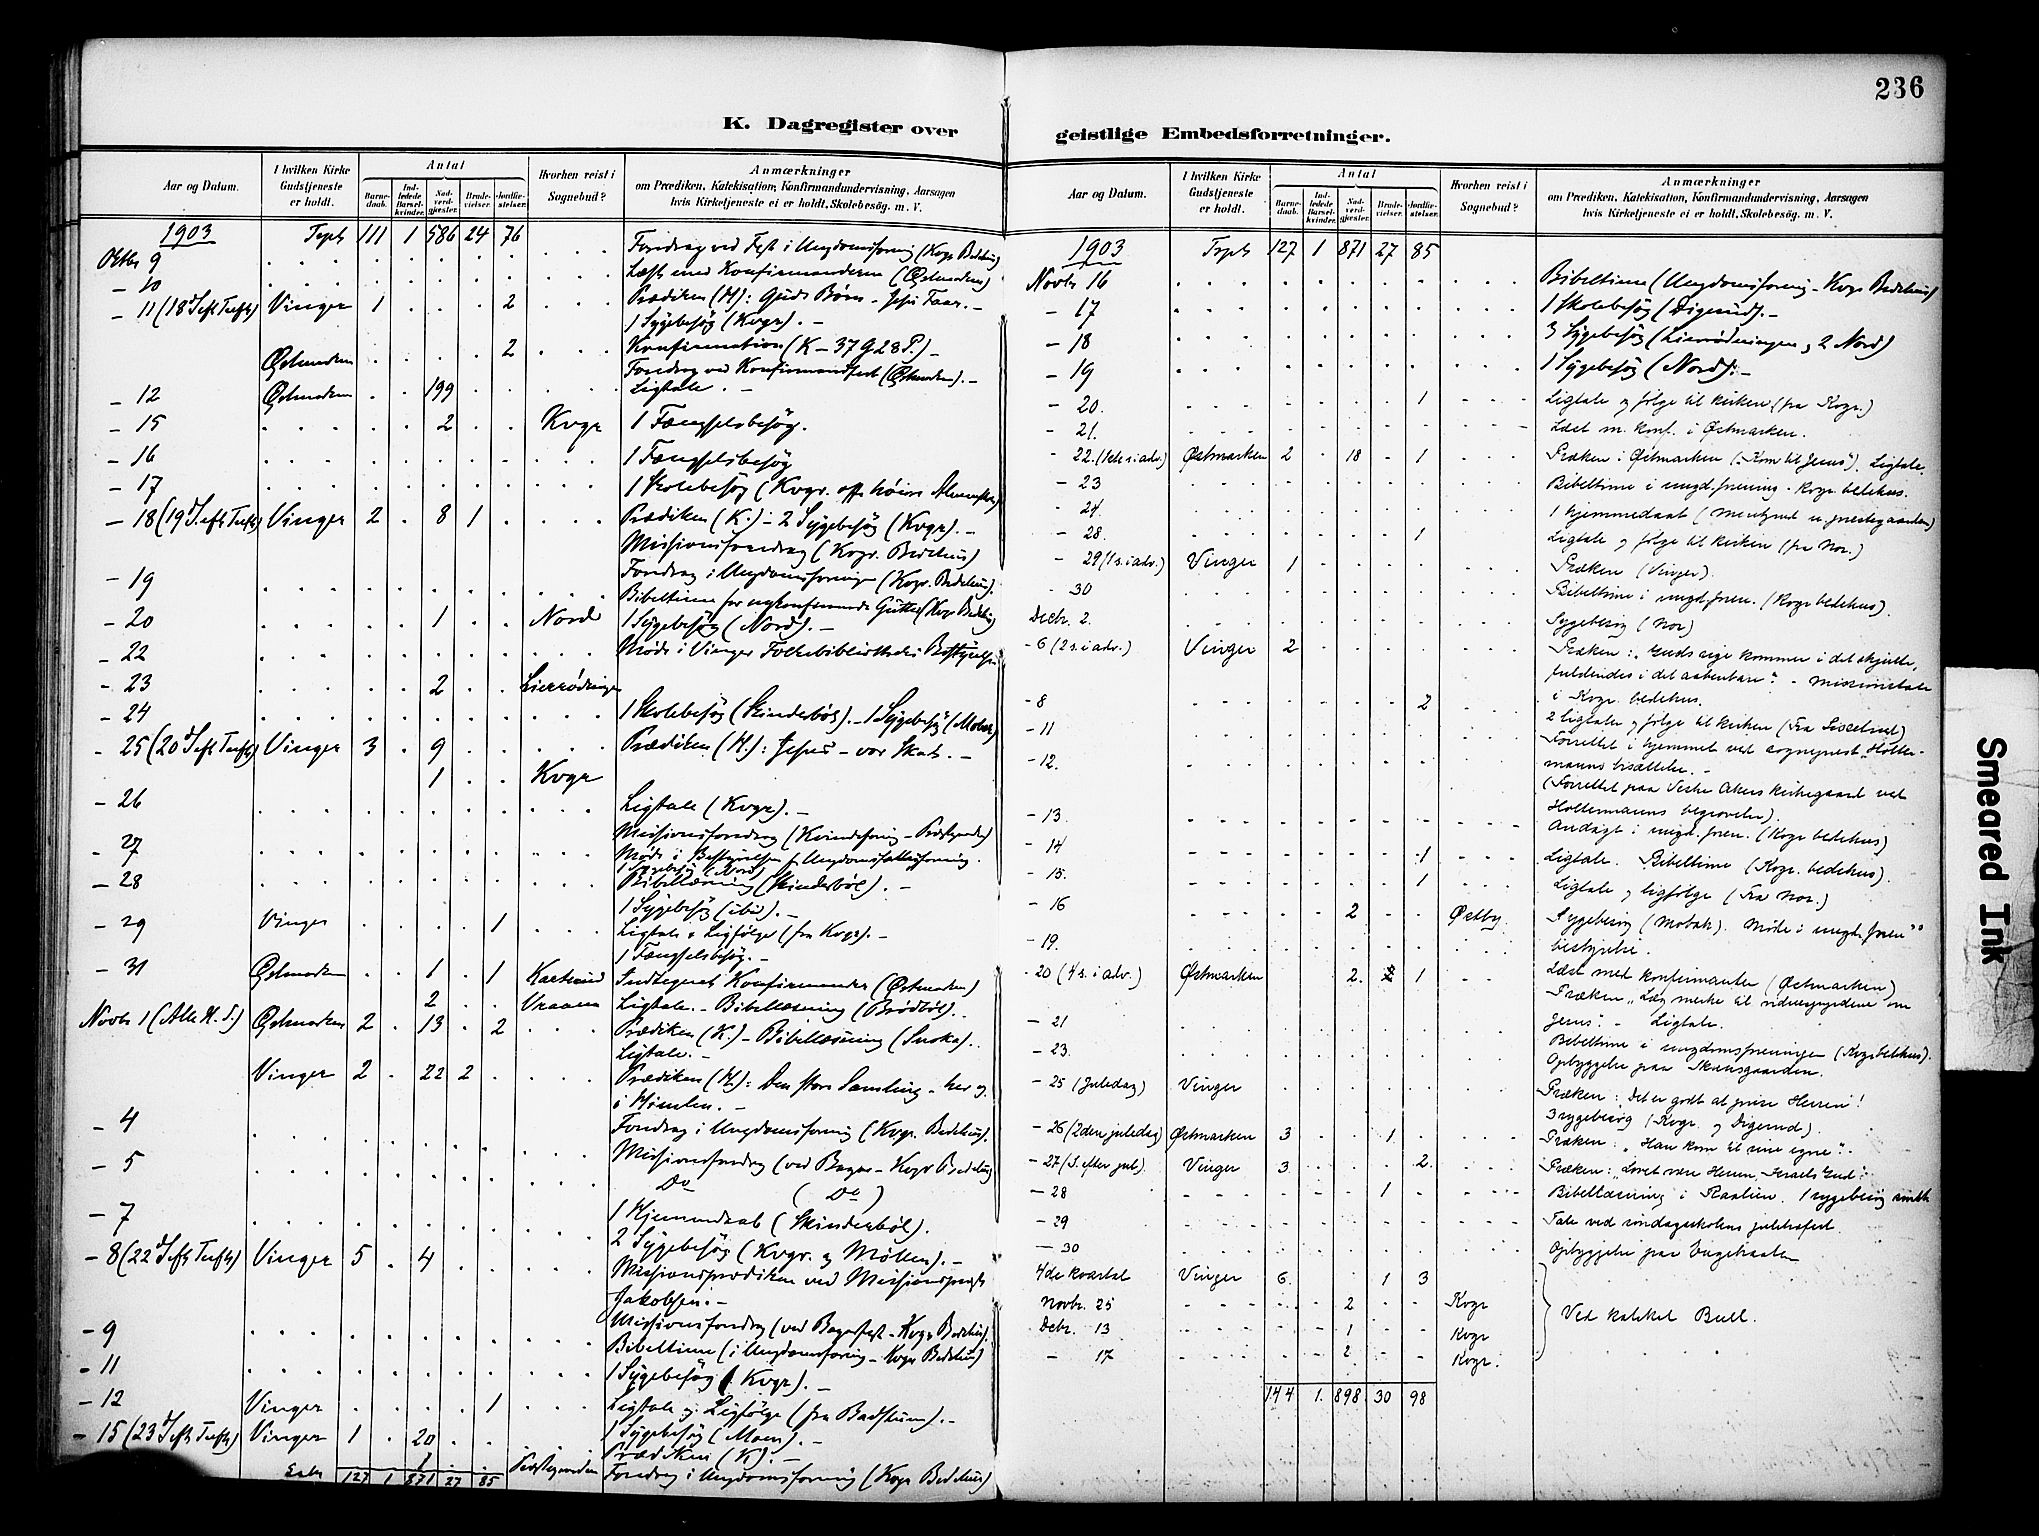 236
K. Dagregister over
geistlige Embedsforretninger.
Aar og Datum.
I hvilken Kirke Gudstjeneste er holdt.
Antal
Barne-daab.
Ind-ledede Barsel-kvinder.
Nad-verd-gjester.
Brude-vielser.
Jordfæ-stelser.
Hvorhen reist i Sognebud?
Anmærkninger
om Prædiken, Katekisation, Konfirmandundervisning, Aarsagen
hvis Kirketjeneste ei er holdt, Skolebesøg. m. V.
1903 Tspt 111 1 586 24 76
Oktbr 9 Foredrag ved Fest i Ungdomsforening (Kvgr Bedehus)
- 10 Læst med Konfirmanderne (Østmarken)
- 11 (18 S. eft Trefh) Vinger 1 2 Prædiken (H): Guds Børn -
1 Sygebesøg (Kvgr). -
Østmarken 2 Konfirmation (K - 37 G 28 P.) -
Foredrag ved Konfirmandfest (Østmarken). -
- 12 Østmarken 199 Ligtale. -
- 15 2 Kvgr 1 Fængselsbesøg.
- 16 1 Fængselsbesøg
- 17 1 Skolebesøg (Kvgr. off. høiere Almueskole)
- 18 (19 S. eft Trefh) Vinger 2 8 1 Prædiken (K.) - 2 Sygebesøg (Kvgr). -
Missionsforedrag (Kvgr. Bedehus)
- 19 Foredrag i Ungdomsforening (Kvgr. Bedehus).
Bibeltime for nykonfirmerede Gutter (Kvgr Bedehus)
- 20 1 Nord 1 Sygebesøg (Nord). -
- 22 Møde i Vinger Folkebibliotheks Bestyrelse
- 23 2 Lierrødningen
- 24 1 Skolebesøg (Skinderböl). - 1 Sygebesøg (Mobæk)
- 25 (20 S. eft Trefh) Vinger 3 9 Prædiken (H.): Jesus - vor Skat. -
1 Kvgr
- 26 Ligtale (Kvgr). -
Missionsforedrag (Kvindeforening - Præstegaarden)
- 27 Møde i Bestyrelsen f. Ungdomsforening.
1 Sygebesøg (Nord)
- 28 Bibellæsning (Skinderböl). -
1 Sygebesøg (ibid). -
- 29 Vinger 1 Ligtale & Ligfølge (fra Kvgr). -
1 Fængselsbesøg. -
- 31 Østmarken 1 1 Indtegnet Konfirmander (Østmarken)
2 Vraaen Ligtale. - Bibellæsning (Brødböl). -
Novbr 1 (Alle H. D.) Østmarken 2 13 2 Prædiken (K.) - Bibellæsning
Ligtale. -
Vinger 2 22 2 Prædiken (H.): Den store Samling - her og
i Himlen. -
- 4 Foredrag i Ungdomsforening (Kvgr. Bedehus).
- 5 Missionsforedrag (ved Bazar - Kvgr Bedehus)
Do (Do)
- 7 1 Hjemmedaab (Skinderböl).
2 Sygebesøg (Kvgr. og Møllen). -
- 8 (22 S. eft Trefh) Vinger 5 4 Missionsprædiken ved Missionsprest
Jakobsen. -
- 9 Missionsforedrag (ved Bazarfest - Kvgr Bedehus).
Bibeltime (i Ungdomsforening - Kvgr Bedehus)
- 11 1 Sygebesøg (Kvgr). -
- 12 Vinger 1 Ligtale og Ligfølge (fra Badstuen). -
- 15 (23 S. eft Trefh) Vinger 1 20 1 Sygebesøg (Moen). -
1 Præstegaarden Prædiken (K). -
127 1 871 27 85 Foredrag i Ungdomsforening (Kvgr Bedehus)
Aar og Datum.
I hvilken Kirke Gudstjeneste er holdt.
Antal
Barne-daab.
Ind-ledede Barsel-kvinder.
Nad-verd-gjester.
Brude-vielser.
Jordfæ-stelser.
Hvorhen reist i Sognebud?
Anmærkninger
om Prædiken, Katekisation, Konfirmandundervisning, Aarsagen
hvis Kirketjeneste ei er holdt, Skolebesøg. m. V.
1903 Tspt 127 1 871 27 85
Novbr 16 Bibeltime (Ungdomsforening - Kvgr Bedehus)
- 17 1 Skolebesøg (Digerud). -
- 18 3 Sygebesøg (Lierrødningen, 2 Nord)
- 19 1 Sygebesøg (Nord). -
- 20. 1 Ligtale og følge til kirken (fra Kvgr.)
- 21. Læst m. konf. i Østmarken.
- 22. (1ste s. i adv.) Østmarken 2 18 1 Præken i Østmarken ("Kom til Jesus"). Ligtale.
- 23 Bibeltime i ungd.forening. Kvgr. bedehus.
- 24. 1 hjemmedaab
- 28. 1 Ligtale og følge til kirken (fra Nor.)
- 29 (1 s. i adv.) Vinger 1 Præken (Vinger).
- 30 Bibeltime i ungd.foren. (Kvgr bedehus).
Decbr. 2. Sygebesøg (Nor)
- 6 (2 s. i adv.) Vinger 2 Præken: "Guds rige kommer i det skjulte,
fuldendes i det aabenbare". - Missionstale
i Kvgr. bedehus.
- 8 2 2 ligtaler og følge til kirken
- 11 Forrettet i hjemmet ved sogneprest Holter-
manns bisættelse. -
- 12. (Forrettet paa Vestre Akers kirkegaard ved
Holtermanns begravelse).
- 13. Andagt i ungd. foren. (Kvgr bedehus)
- 14 1 Ligtale. Bibeltime (Kvgr. bedehus).
- 15. 1 Ligtale og ligfølge (Fra Nor.)
- 16 2 Østby. Sygebesøg (Mobæk). Møde i ungd.foren"s
bestyrelse.
- 19. Læst med konfirmanter (Østmarken)
- 20 (4 s. i adv.) Østmarken 2. 1 Præken "Læg merke til vidnesbyrdene om
Jesus". - Ligtale.
- 21 Bibeltime i ungdomsforeningen (Kvgr bedehus).
- 23. Opbyggelse paa Skansgaarden.
- 25 (Juledag) Vinger Præken: Det er godt at prise Herren!
3 sygebesøg (Kvgr. og Digerud).
- 26 (2den juledag) Østmarken 3 1 Præken: "Han kom til sine egne".
- 27 (S. efter jul) Vinger 3. 2. Præken: "Lovet være Herren, Israels Gud".
- 28 1 Bibellæsning i
- 29 Tale ved søndagsskolens juletræfest.
- 30 Opbyggelse paa
4de kvartal Vinger 6. 1 3
Novbr. 25 2 Kvgr
Decbr. 13 1 Kvgr
- 17 2 Kvgr.
Ved kateket Bull.
144 1. 898 30 98
Smeared Ink